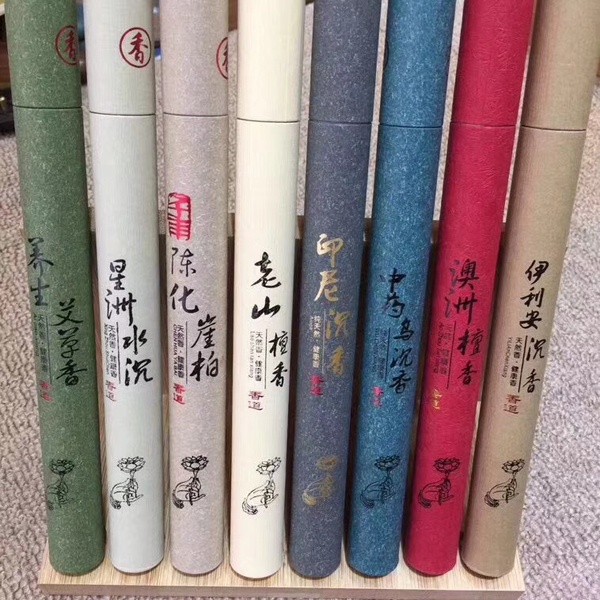 香
养生
艾草香
香
星洲水沉
天然香·健康香
香道
陈化
崖柏
天然香·健康香
香道
老山檀香
天然香·健康香
香道
印尼沉香
纯天然·健康香
香道
中药乌沉香
香道
澳洲檀香
香道
伊利安沉香
天然香·健康香
香道